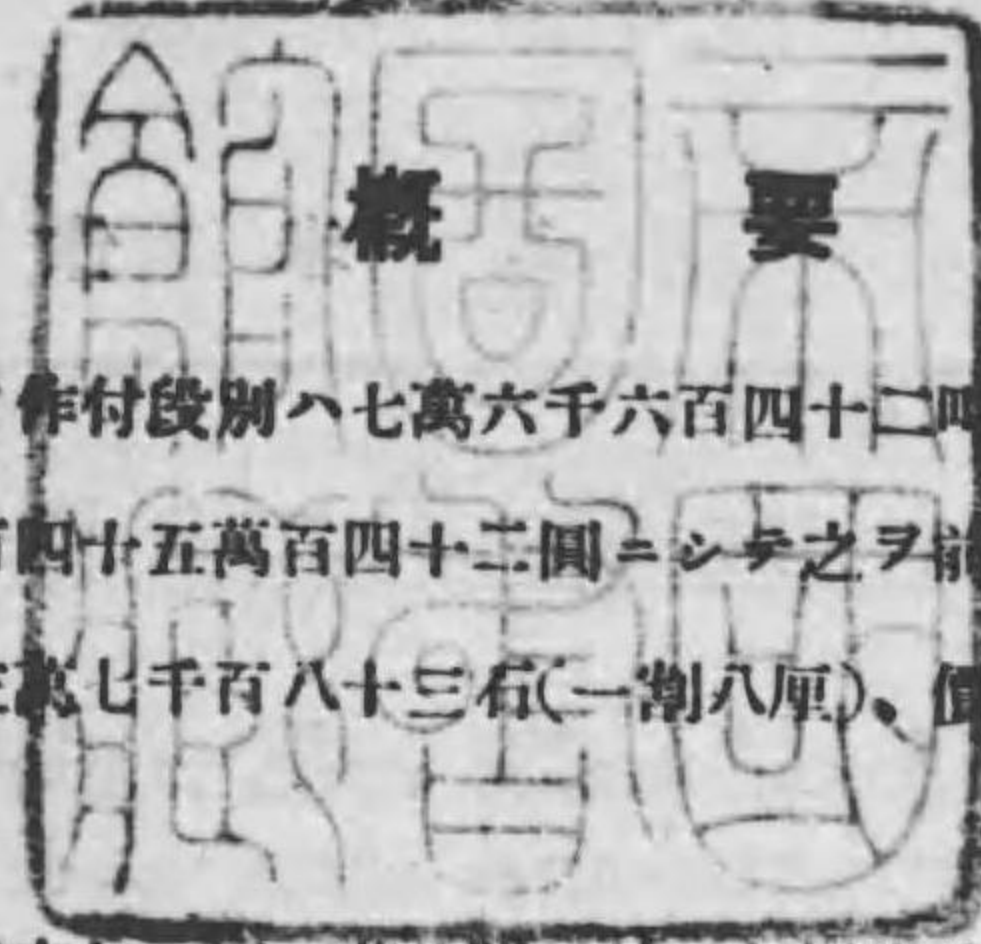 概要
作付段別ハ七萬六千六百四十二
四十五萬百四十二圓ニシテ之ヲ前
萬七千百八十三石(一割八厘)、價
帝國
圖書
館藏